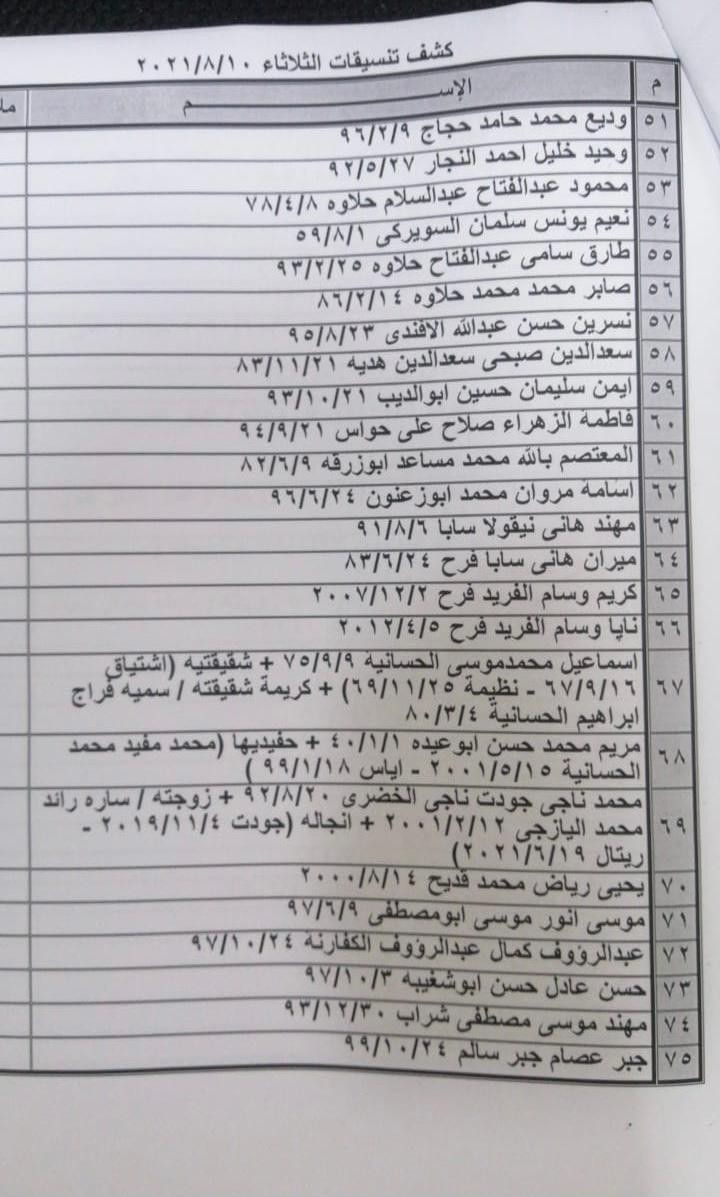 كشف تنسيقات الثلاثاء ٢٠٢١/٨/١٠
م الإســــــــــــم
٥١ وديع محمد حامد حجاج ٩٦/٢/٩
٥٢ وحيد خليل احمد النجار ٩٢/٥/٢٧
٥٣ محمود عبدالفتاح عبدالسلام حلاوه ٧٨/٤/٨
٥٤ نعيم يونس سلمان السويركى ٥٩/٨/١
٥٥ طارق سامى عبدالفتاح حلاوه ٩٣/٢/٢٥
٥٦ صابر محمد محمد حلاوه ٨٦/٢/١٤
٥٧ نسرين حسن عبدالله الافندى ٩٥/٨/٢٣
٥٨ سعدالدين صبحى سعدالدين هديه ٨٣/١١/٢١
٥٩ ايمن سليمان حسين ابوالديب ٩٣/١٠/٢١
٦٠ فاطمة الزهراء صلاح على حواس ٩٤/٩/٢١
٦١ المعتصم بالله محمد مساعد ابوزرقه ٨٢/٦/٩
٦٢ اسامة مروان محمد ابوزعنون ٩٦/٦/٢٤
٦٣ مهند هانى نيقولا سابا ٩١/٨/٦
٦٤ ميران هانى سابا فرح ٨٣/٦/٢٤
٦٥ كريم وسام الفريد فرح ٢٠٠٧/١٢/٢
٦٦ نايا وسام الفريد فرح ٢٠١٢/٤/٥
اسماعيل محمدموسى الحسانية ٧٥/٩/٩ + شقيقتيه (اشتياق
٦٧ ٦٧/٩/١٦ - نظيمة ٦٩/١١/٢٥) + كريمة شقيقته / سميه فراج
ابراهيم الحسانية ٨٠/٣/٤
٦٨ مريم محمد حسن ابوعيده ٤٠/١/١ + حفيديها (محمد مفيد محمد
الحسانية ٢٠٠١/٥/١٥ - اياس ٩٩/١/١٨ )
محمد ناجى جودت ناجى الخضرى ٩٢/٨/٢٠ + زوجته / ساره رائد
٦٩ محمد اليازجى ٢٠٠١/٢/١٢ + انجاله (جودت ٢٠١٩/١١/٤ -
ريتال ٢٠٢١/٦/١٩)
٧٠ يحيى رياض محمد قديح ٢٠٠٠/٨/١٤
٧١ موسى انور موسى ابومصطفى ٩٧/٦/٩
٧٢ عبدالرؤوف كمال عبدالرؤوف الكفارنة ٩٧/١٠/٢٤
٧٣ حسن عادل حسن ابوشغيبه ٩٧/١٠/٣
٧٤ مهند موسى مصطفى شراب ٩٣/١٢/٣٠
٧٥ جبر عصام جبر سالم ٩٩/١٠/٢٤